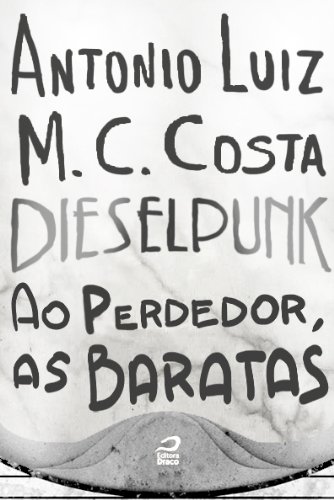 ANTONIO LUIZ
M. C. COSTA
DIESELPUNK
AO PERDEDOR,
AS BARATAS
Editora
Draco